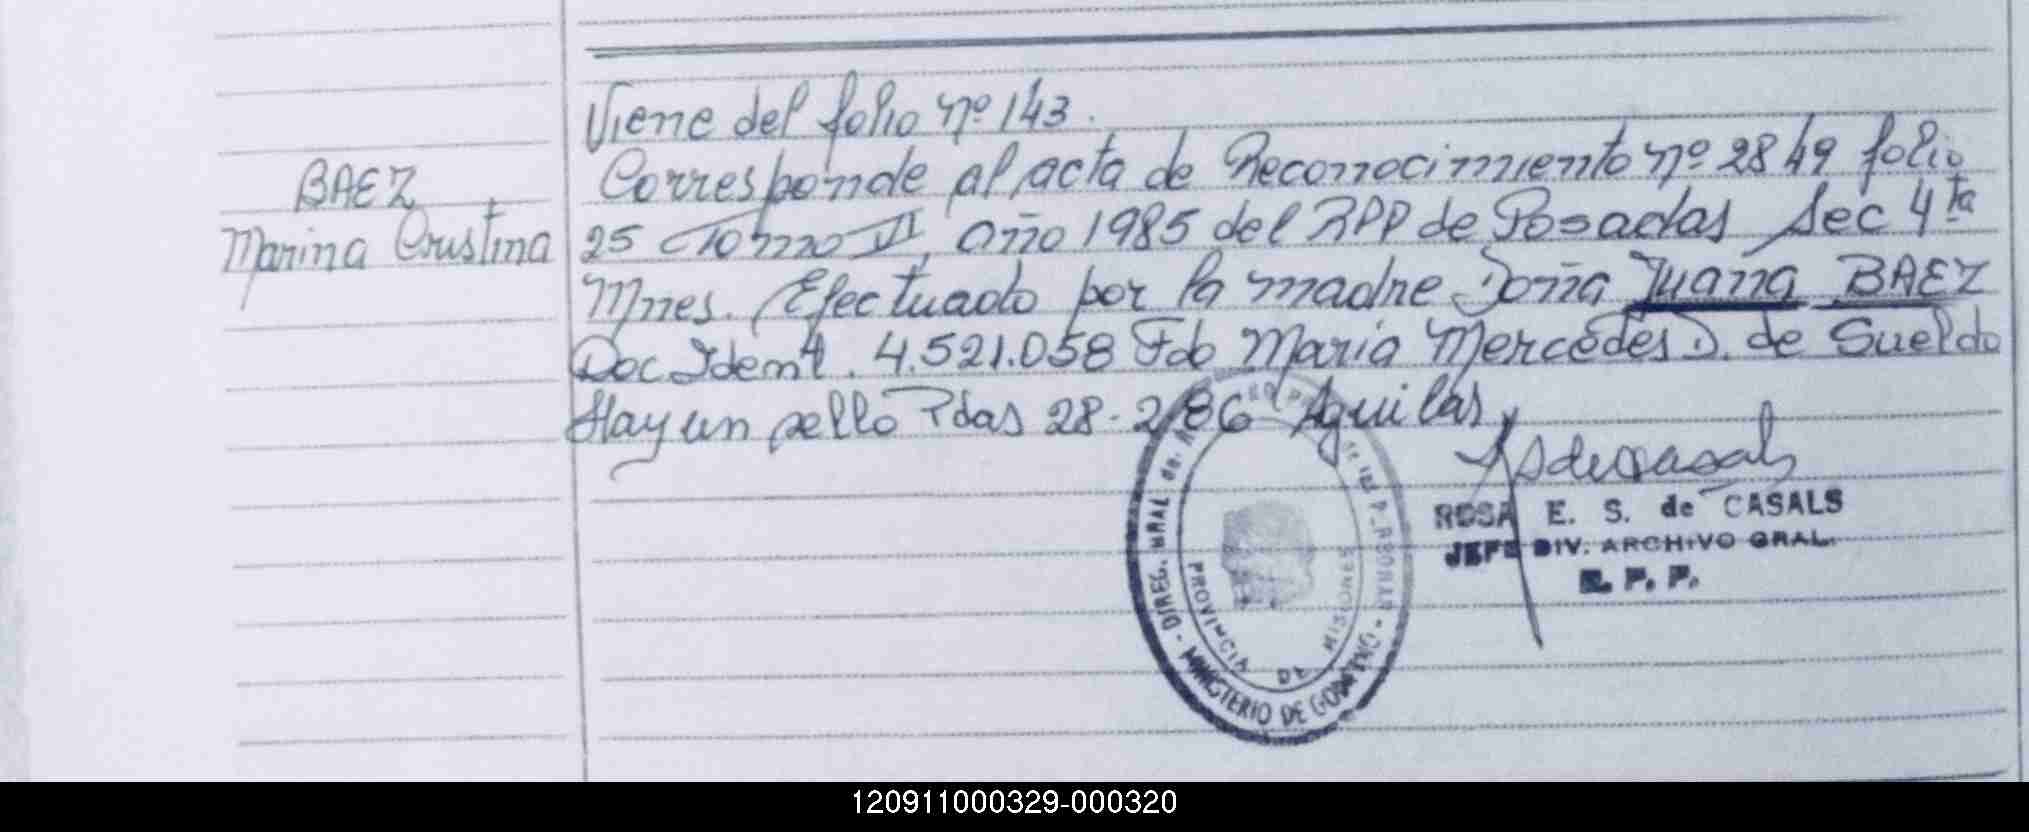 Viene del folio nº 143.
BAEZ
Marina Cristina
Corresponde al acta de Reconocimiento nº 2849 folio
25 Tomo VI, año 1985 del RPP de Posadas Sec 4ta
Mnes. Efectuado por la madre Doña Juana BAEZ
Doc Ident. 4.521.058 Fdo Maria Mercedes D. de Sueldo
Hay un sello Pdas 28-2-86 Aguilar
ROSA E. S. de CASALS
JEFE DIV. ARCHIVO GRAL.
R. P. P.
DIREG. GRAL de de las PERSONAS
PROVINCIA DE MISIONES
MINISTERIO DE GOBIERNO
120911000329-000320